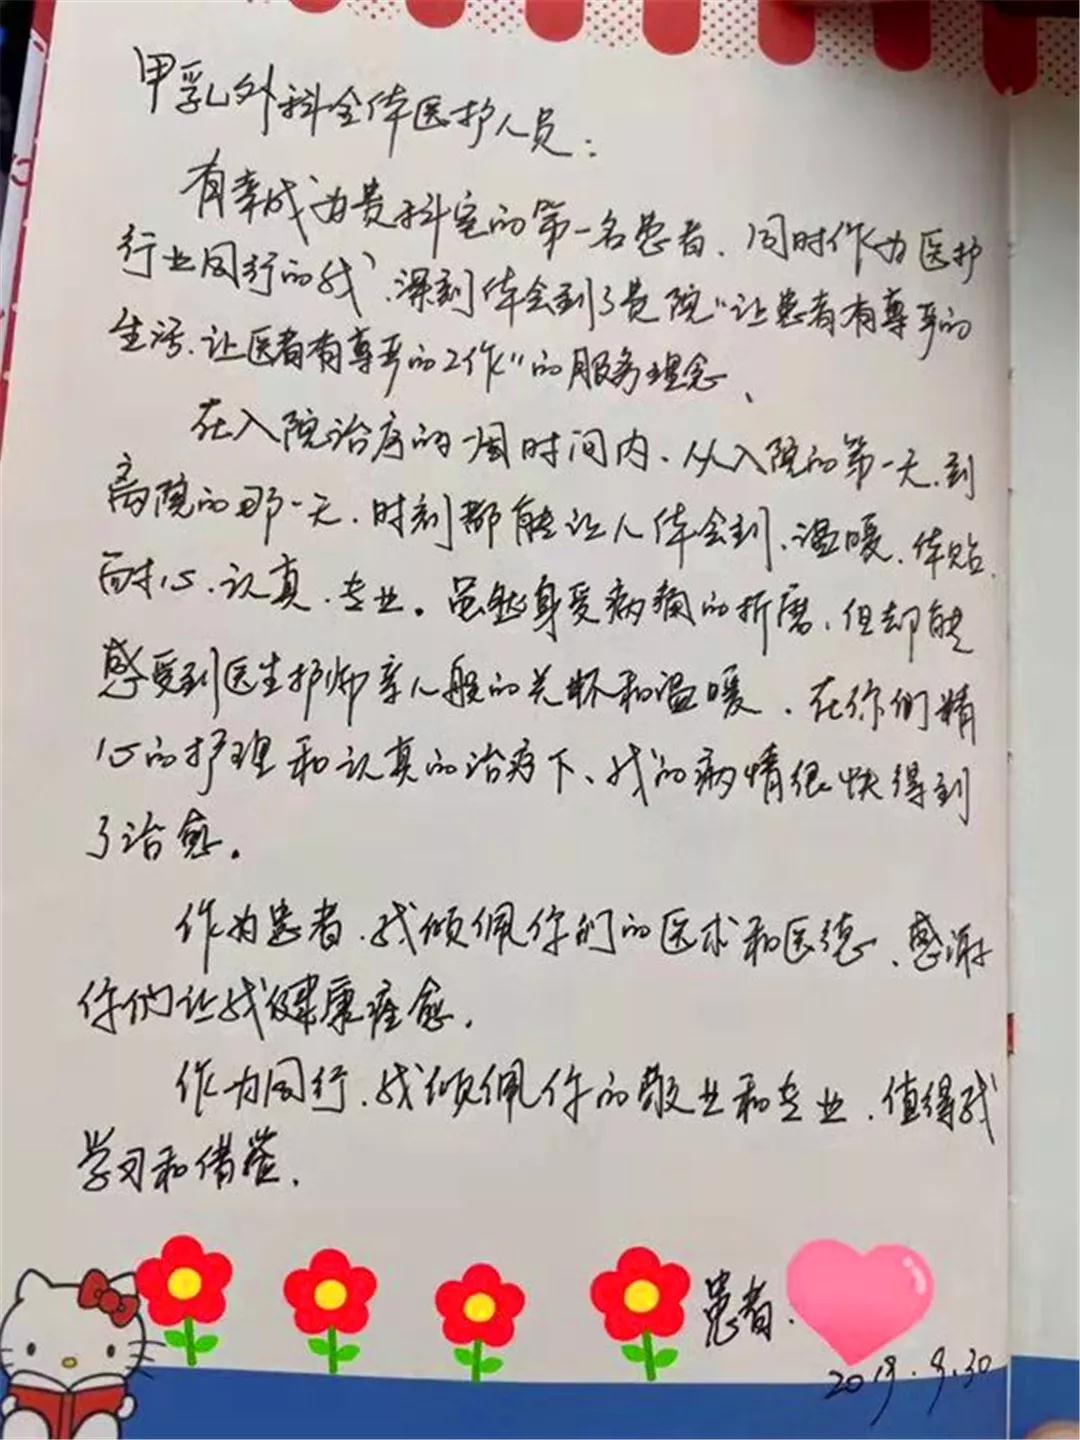 甲乳外科全体医护人员：
有幸成为贵科室的第一名患者、同时作为医护
行业同行的我、深刻体会到了贵院“让患者有尊严的
生活、让医者有尊严的工作”的服务理念、
在入院治疗的一周时间内、从入院的第一天、到
离院的那一天、时刻都能让人体会到、温暖、体贴、
耐心、认真、专业。虽然身受病痛的折磨、但却能
感受到医生护师亲人般的关怀和温暖、在你们精
心的护理和认真的治疗下、我的病情很快得到
了治愈。
作为患者、我倾佩你们的医术和医德、感谢
你们让我健康痊愈。
作为同行、我倾佩你的敬业和专业、值得我
学习和借鉴.
患者.
2019.9.30